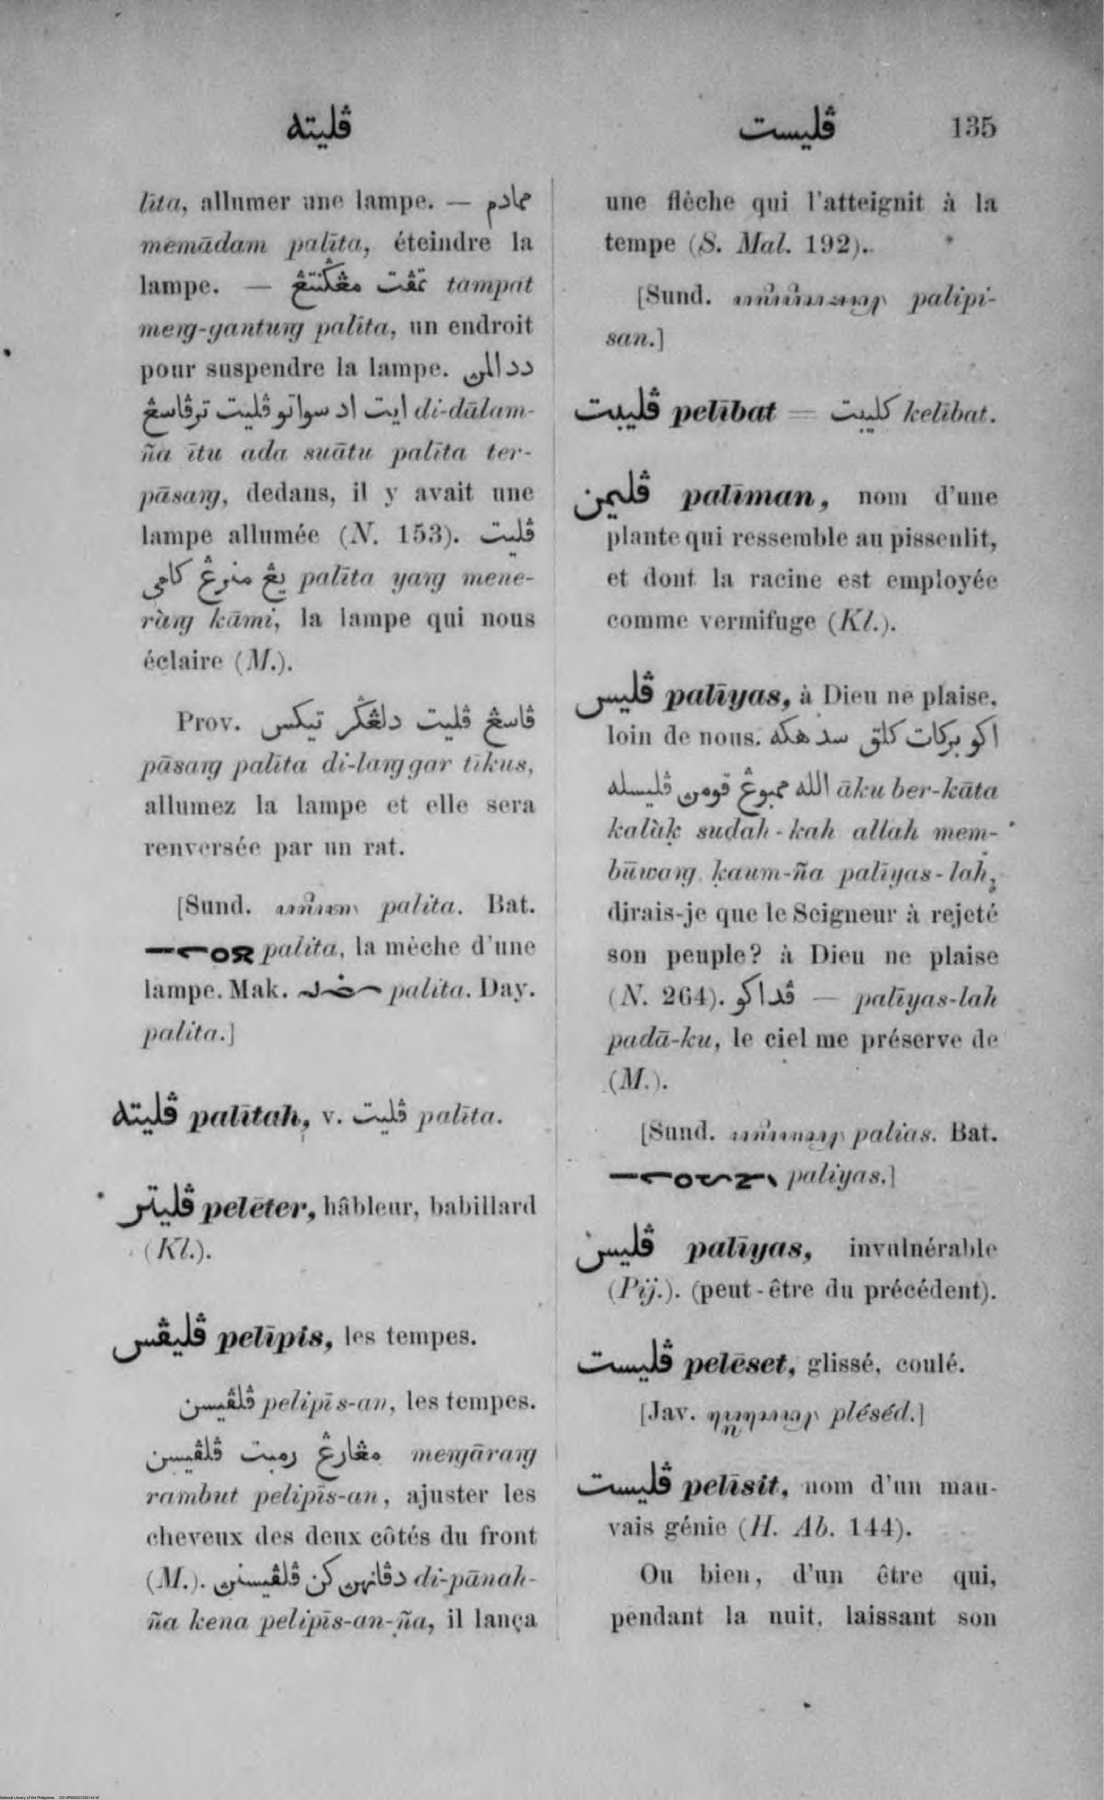 ڤليته
ڤليست 135
līta, allumer une lampe. — ممادم
memādam palīta, éteindre la
lampe. — تمڤت مڠڬنتڠ tampat
meng-gantung palīta, un endroit
pour suspendre la lampe. ددالمڽ
ايت اد سواتو ڤليت ترڤاسڠ di-dālam-
ña ītu ada suātu palīta ter-
pāsang, dedans, il y avait une
lampe allumée (N. 153). ڤليت
يڠ منرڠ كامي palīta yang mene-
ràng kāmi, la lampe qui nous
éclaire (M.).
Prov. ڤاسڠ ڤليت دلڠڬر تيكس
pāsang palīta di-langgar tīkus,
allumez la lampe et elle sera
renversée par un rat.
[Sund. palita. Bat.
palita, la mèche d'une
lampe. Mak. palita. Day.
palita.]
ڤليته palītah, v. ڤليت palīta.
ڤليتر pelēter, hâbleur, babillard
(Kl.).
ڤليڤس pelīpis, les tempes.
ڤلڤيسن pelipīs-an, les tempes.
مڠارڠ رمبت ڤلڤيسن mengārang
rambut pelipīs-an, ajuster les
cheveux des deux côtés du front
(M.). دڤانهڽ كن ڤلڤيسنڽ di-pānah-
ña kena pelipīs-an-ña, il lança
une flèche qui l'atteignit à la
tempe (S. Mal. 192).
[Sund. palipi-
san.]
ڤليبت pelībat = كليبت kelībat.
ڤليمن palīman, nom d'une
plante qui ressemble au pissenlit,
et dont la racine est employée
comme vermifuge (Kl.).
ڤليس palīyas, à Dieu ne plaise,
loin de nous. اكو بركات كلق سدهكه
الله ممبوڠ قومڽ ڤليسله āku ber-kāta
kalàk sudah-kah allah mem-
būwang kaum-ña palīyas-lah,
dirais-je que le Seigneur à rejeté
son peuple? à Dieu ne plaise
(N. 264). ڤداكو — palīyas-lah
padā-ku, le ciel me préserve de
(M.).
[Sund. palias. Bat.
paliyas.]
ڤليس palīyas, invulnérable
(Pij.). (peut-être du précédent).
ڤليست pelēset, glissé, coulé.
[Jav. pléséd.]
ڤليست pelīsit, nom d'un mau-
vais génie (H. Ab. 144).
Ou bien, d'un être qui,
pendant la nuit, laissant son